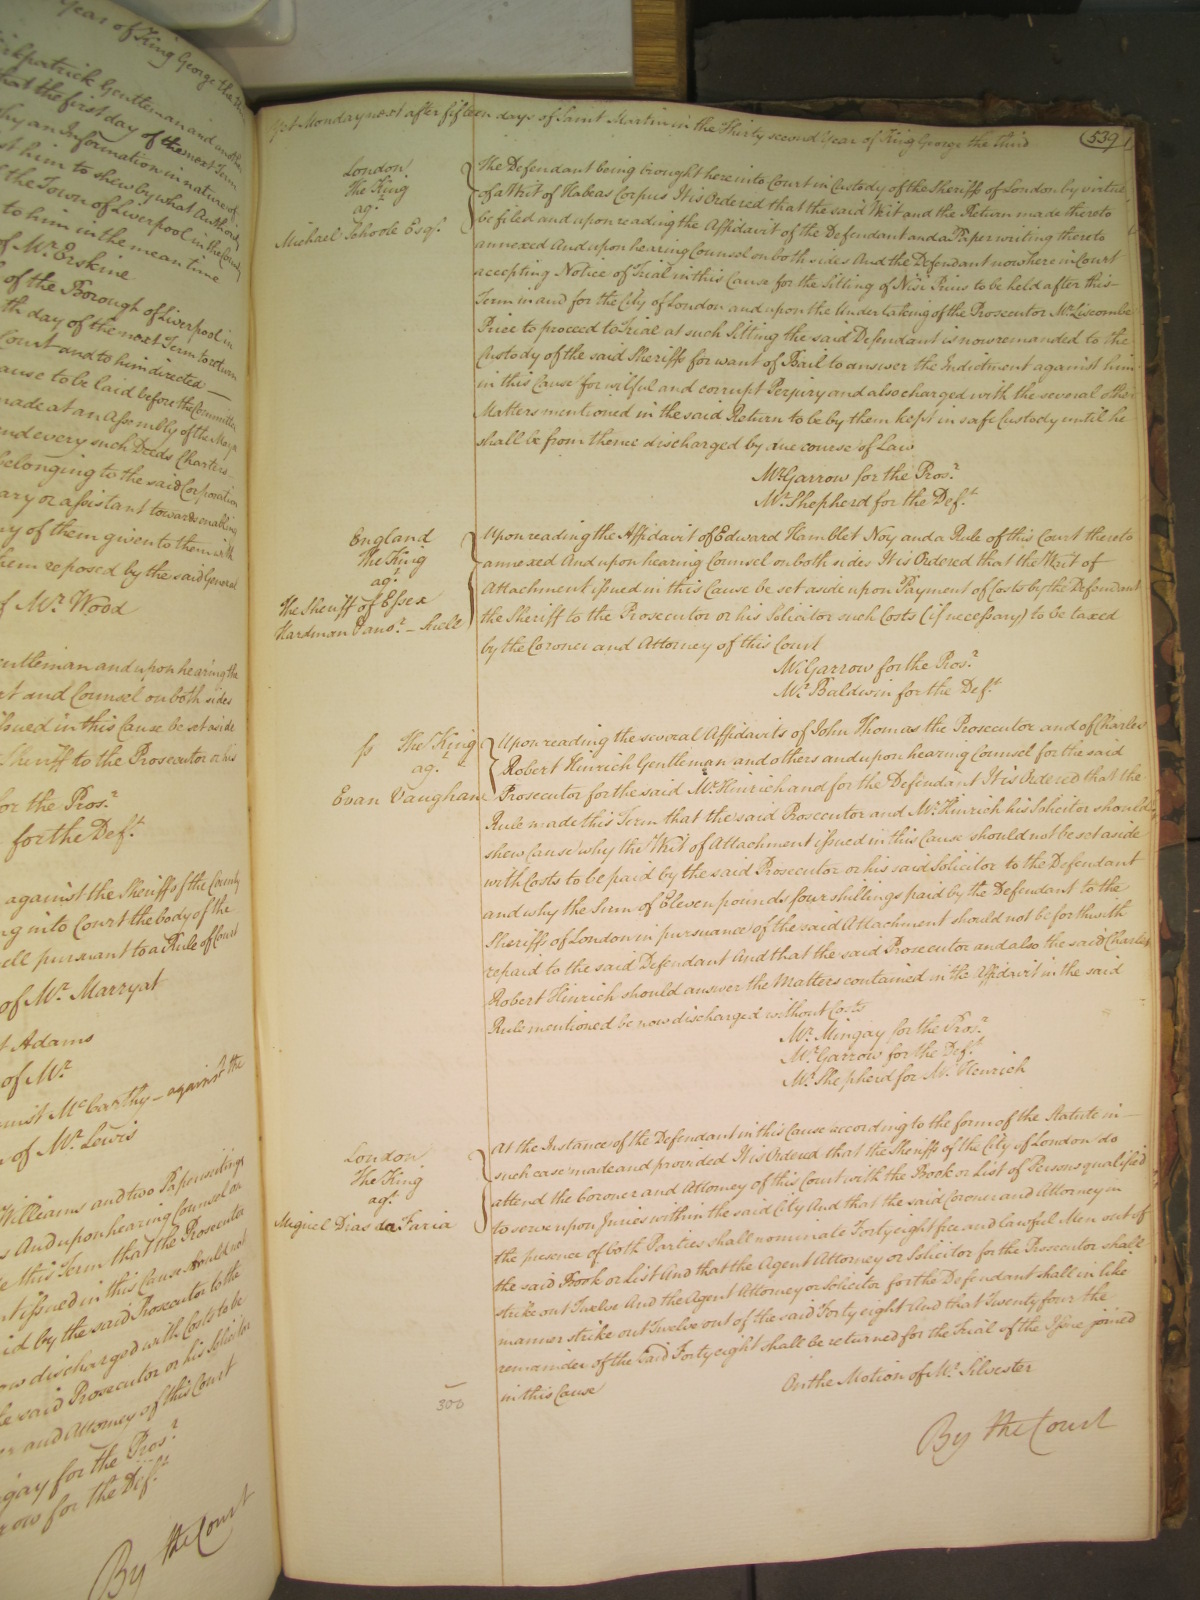 Year of King George the
Kirkpatrick Gentleman and another
that the first day of the next Term
why an Information in nature of
st him to shew by what Authority
the Town of Liverpool in the County
to him in the mean time
of Mr. Erskine
of the Borough of Liverpool in
th day of the next Term to return
Court and to him directed
ause to be laid before the Committee
made at an Assembly of the Mayor
end every such Deeds Charters
belonging to the said Corporation
ary or assistant towards enabling
ny of them given to them with
them reposed by the said General
of Mr. Wood
entleman and upon hearing the
nt and Counsel on both sides
issued in this Cause be set aside
Sheriff to the Prosecutor or his
for the Pros.r
for the Def.t
against the Sheriff of the County
ng into Court the body of the
ell pursuant to a Rule of Court
of Mr. Marryat
t Adams
of Mr.
against McCarthy – against the
n of Mr. Lewis
Williams and two Paper writings
s And upon hearing Counsel on
e this Term that the Prosecutor
nt issued in this Cause should not
aid by the said Prosecutor to the
ow discharged with Costs to be
e said Prosecutor or his Solicitor
er and Attorney of this Court
gay for the Pros.r
row for the Def.t
By the Court
Yet Monday next after fifteen days of Saint Martin in the Thirty second Year of King George the third
539
London
The King
ag.t
Michael Schoole Esq.r
The Defendant being brought here into Court in Custody of the Sheriffs of London by virtue
of a Writ of Habeas Corpus It is Ordered that the said Writ and the Return made thereto
be filed and upon reading the Affidavit of the Defendant and a Paper writing thereto
annexed And upon hearing Counsel on both sides And the Defendant now here in Court
accepting Notice of Trial in this Cause for the Sitting of Nisi Prius to be held after this
Term in and for the City of London and upon the Undertaking of the Prosecutor Mr. Liscombe
Price to proceed to Trial at such Sitting the said Defendant is now remanded to the
Custody of the said Sheriffs for want of Bail to answer the Indictment against him
in this Cause for wilful and corrupt Perjury and also charged with the several other
Matters mentioned in the said Return to be by them kept in safe Custody until he
shall be from thence discharged by due course of Law
Mr. Garrow for the Pros.r
Mr. Shepherd for the Def.t
England
The King
ag.t
The Sheriff of Essex
Hardman
Upon reading the Affidavit of Edward Hamblet Noy and a Rule of this Court thereto
annexed And upon hearing Counsel on both sides It is Ordered that the Writ of
Attachment issued in this Cause be set aside upon Payment of Costs by the Defendant
the Sheriff to the Prosecutor or his Solicitor such Costs (if necessary) to be taxed
by the Coroner and Attorney of this Court
Mr. Garrow for the Pros.r
Mr. Baldwin for the Def.t
The King
ag.t
Evan Vaughan
Upon reading the several Affidavits of John Thomas the Prosecutor and of Charles
Robert Hinrich Gentleman and others and upon hearing Counsel for the said
Prosecutor for the said Mr. Hinrich and for the Defendant It is Ordered that the
Rule made this Term that the said Prosecutor and Mr. Hinrich his Solicitor should
shew Cause why the Writ of Attachment issued in this Cause should not be set aside
with Costs to be paid by the said Prosecutor or his said Solicitor to the Defendant
and why the Sum of Eleven pounds four shillings paid by the Defendant to the
Sheriffs of London in pursuance of the said Attachment should not be forthwith
repaid to the said Defendant And that the said Prosecutor and also the said Charles
Robert Hinrich should answer the Matters contained in the Affidavit in the said
Rule mentioned be now discharged without Costs
Mr. Mingay for the Pros.r
Mr. Garrow for the Def.t
Mr. Shepherd for Mr. Henrich
London
The King
ag.t
Miguel Dias da Faria
At the Instance of the Defendant in this Cause according to the form of the Statute in
such case made and provided It is Ordered that the Sheriffs of the City of London do
attend the Coroner and Attorney of this Court with the Book or List of Persons qualified
to serve upon Juries within the said City And that the said Coroner and Attorney in
the presence of both Parties shall nominate Forty eight free and lawful Men out of
the said Book or List And that the Agent Attorney or Solicitor for the Prosecutor shall
strike out Twelve And the Agent Attorney or Solicitor for the Defendant shall in like
manner strike out Twelve out of the said Forty eight And that Twenty four the
remainder of the said Forty eight shall be returned for the Trial of the Issue joined
in this Cause
On the Motion of Mr. Silvester
300
By the Court